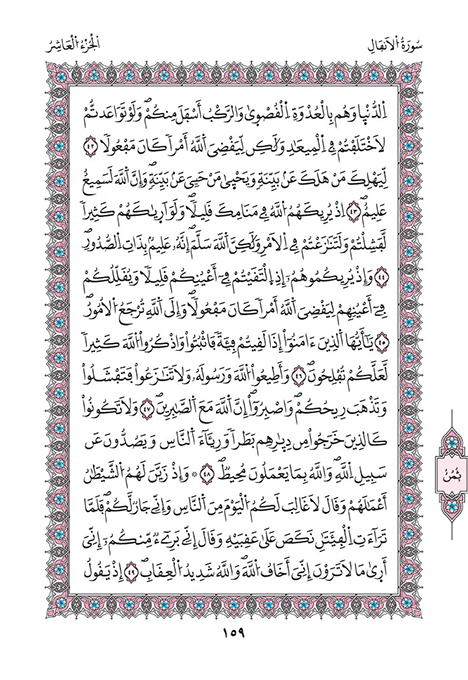 سُورَةُ الْأَنفَالِ
الْجُزْءُ الْعَاشِرُ
اِ۬لدُّنْيَا وَهُم بِالْعُدْوَةِ اِ۬لْقُصْوۭيٰ وَالرَّكْبُ أَسْفَلَ مِنكُمْۖ وَلَوْ تَوَاعَدتُّمْ
لَاخْتَلَفْتُمْ فِے اِ۬لْمِيعَٰدِ وَلَٰكِن لِّيَقْضِيَ اَ۬للَّهُ أَمْراٗ كَانَ مَفْعُولاٗ ٤٢
لِّيَهْلِكَ مَنْ هَلَكَ عَنۢ بَيِّنَةٖ وَيَحْيۭيٰ مَنْ حَيِيَ عَنۢ بَيِّنَةٖۖ وَإِنَّ اَ۬للَّهَ لَسَمِيعٌ
عَلِيمٌ ٤٣ اِذْ يُرِيكَهُمُ اُ۬للَّهُ فِے مَنَامِكَ قَلِيلاٗۖ وَلَوَ اَر۪يٰكَهُمْ كَثِيراٗ
لَّفَشِلْتُمْ وَلَتَنَٰزَعْتُمْ فِے اِ۬لَامْرِ وَلَٰكِنَّ اَ۬للَّهَ سَلَّمَۖ إِنَّهُۥ عَلِيمُۢ بِذَاتِ اِ۬لصُّدُورِۖ
٤٤ وَإِذْ يُرِيكُمُوهُمُۥٓ إِذِ اِ۬لْتَقَيْتُمْ فِےٓ أَعْيُنِكُمْ قَلِيلاٗ وَيُقَلِّلُكُمْ
فِےٓ أَعْيُنِهِمْ لِيَقْضِيَ اَ۬للَّهُ أَمْراٗ كَانَ مَفْعُولاٗۖ وَإِلَي اَ۬للَّهِ تُرْجَعُ اُ۬لُامُورُۖ
٤٥ يَٰٓأَيُّهَا اَ۬لذِينَ ءَامَنُوٓاْ إِذَا لَقِيتُمْ فِئَةٗ فَاثْبُتُواْ وَاذْكُرُواْ اُ۬للَّهَ كَثِيراٗ
لَّعَلَّكُمْ تُفْلِحُونَۖ ٤٦ وَأَطِيعُواْ اُ۬للَّهَ وَرَسُولَهُۥ وَلَا تَنَٰزَعُواْ فَتَفْشَلُواْ
وَتَذْهَبَ رِيحُكُمْۖ وَاصْبِرُوٓاْۖ إِنَّ اَ۬للَّهَ مَعَ اَ۬لصَّٰبِرِينَۖ ٤٧ وَلَا تَكُونُواْ
كَالذِينَ خَرَجُواْ مِن دِيٰ۪رِهِم بَطَراٗ وَرِئَآءَ اَ۬لنَّاسِ وَيَصُدُّونَ عَن
سَبِيلِ اِ۬للَّهِۖ وَاللَّهُ بِمَا يَعْمَلُونَ مُحِيطٞۖ ٤٨ ۞ وَإِذْ زَيَّنَ لَهُمُ اُ۬لشَّيْطَٰنُ
أَعْمَٰلَهُمْ وَقَالَ لَا غَالِبَ لَكُمُ اُ۬لْيَوْمَ مِنَ اَ۬لنَّاسِ وَإِنِّے جَارٞ لَّكُمْۖ فَلَمَّا
تَرَآءَتِ اِ۬لْفِئَتَٰنِ نَكَصَ عَلَيٰ عَقِبَيْهِ وَقَالَ إِنِّے بَرِےٓءٞ مِّنكُمُۥٓ إِنِّيَ
أَر۪يٰ مَا لَا تَرَوْنَ إِنِّيَ أَخَافُ اُ۬للَّهَۖ وَاللَّهُ شَدِيدُ اُ۬لْعِقَابِۖ ٤٩ إِذْ يَقُولُ
ثُمُنُ
١٥٩